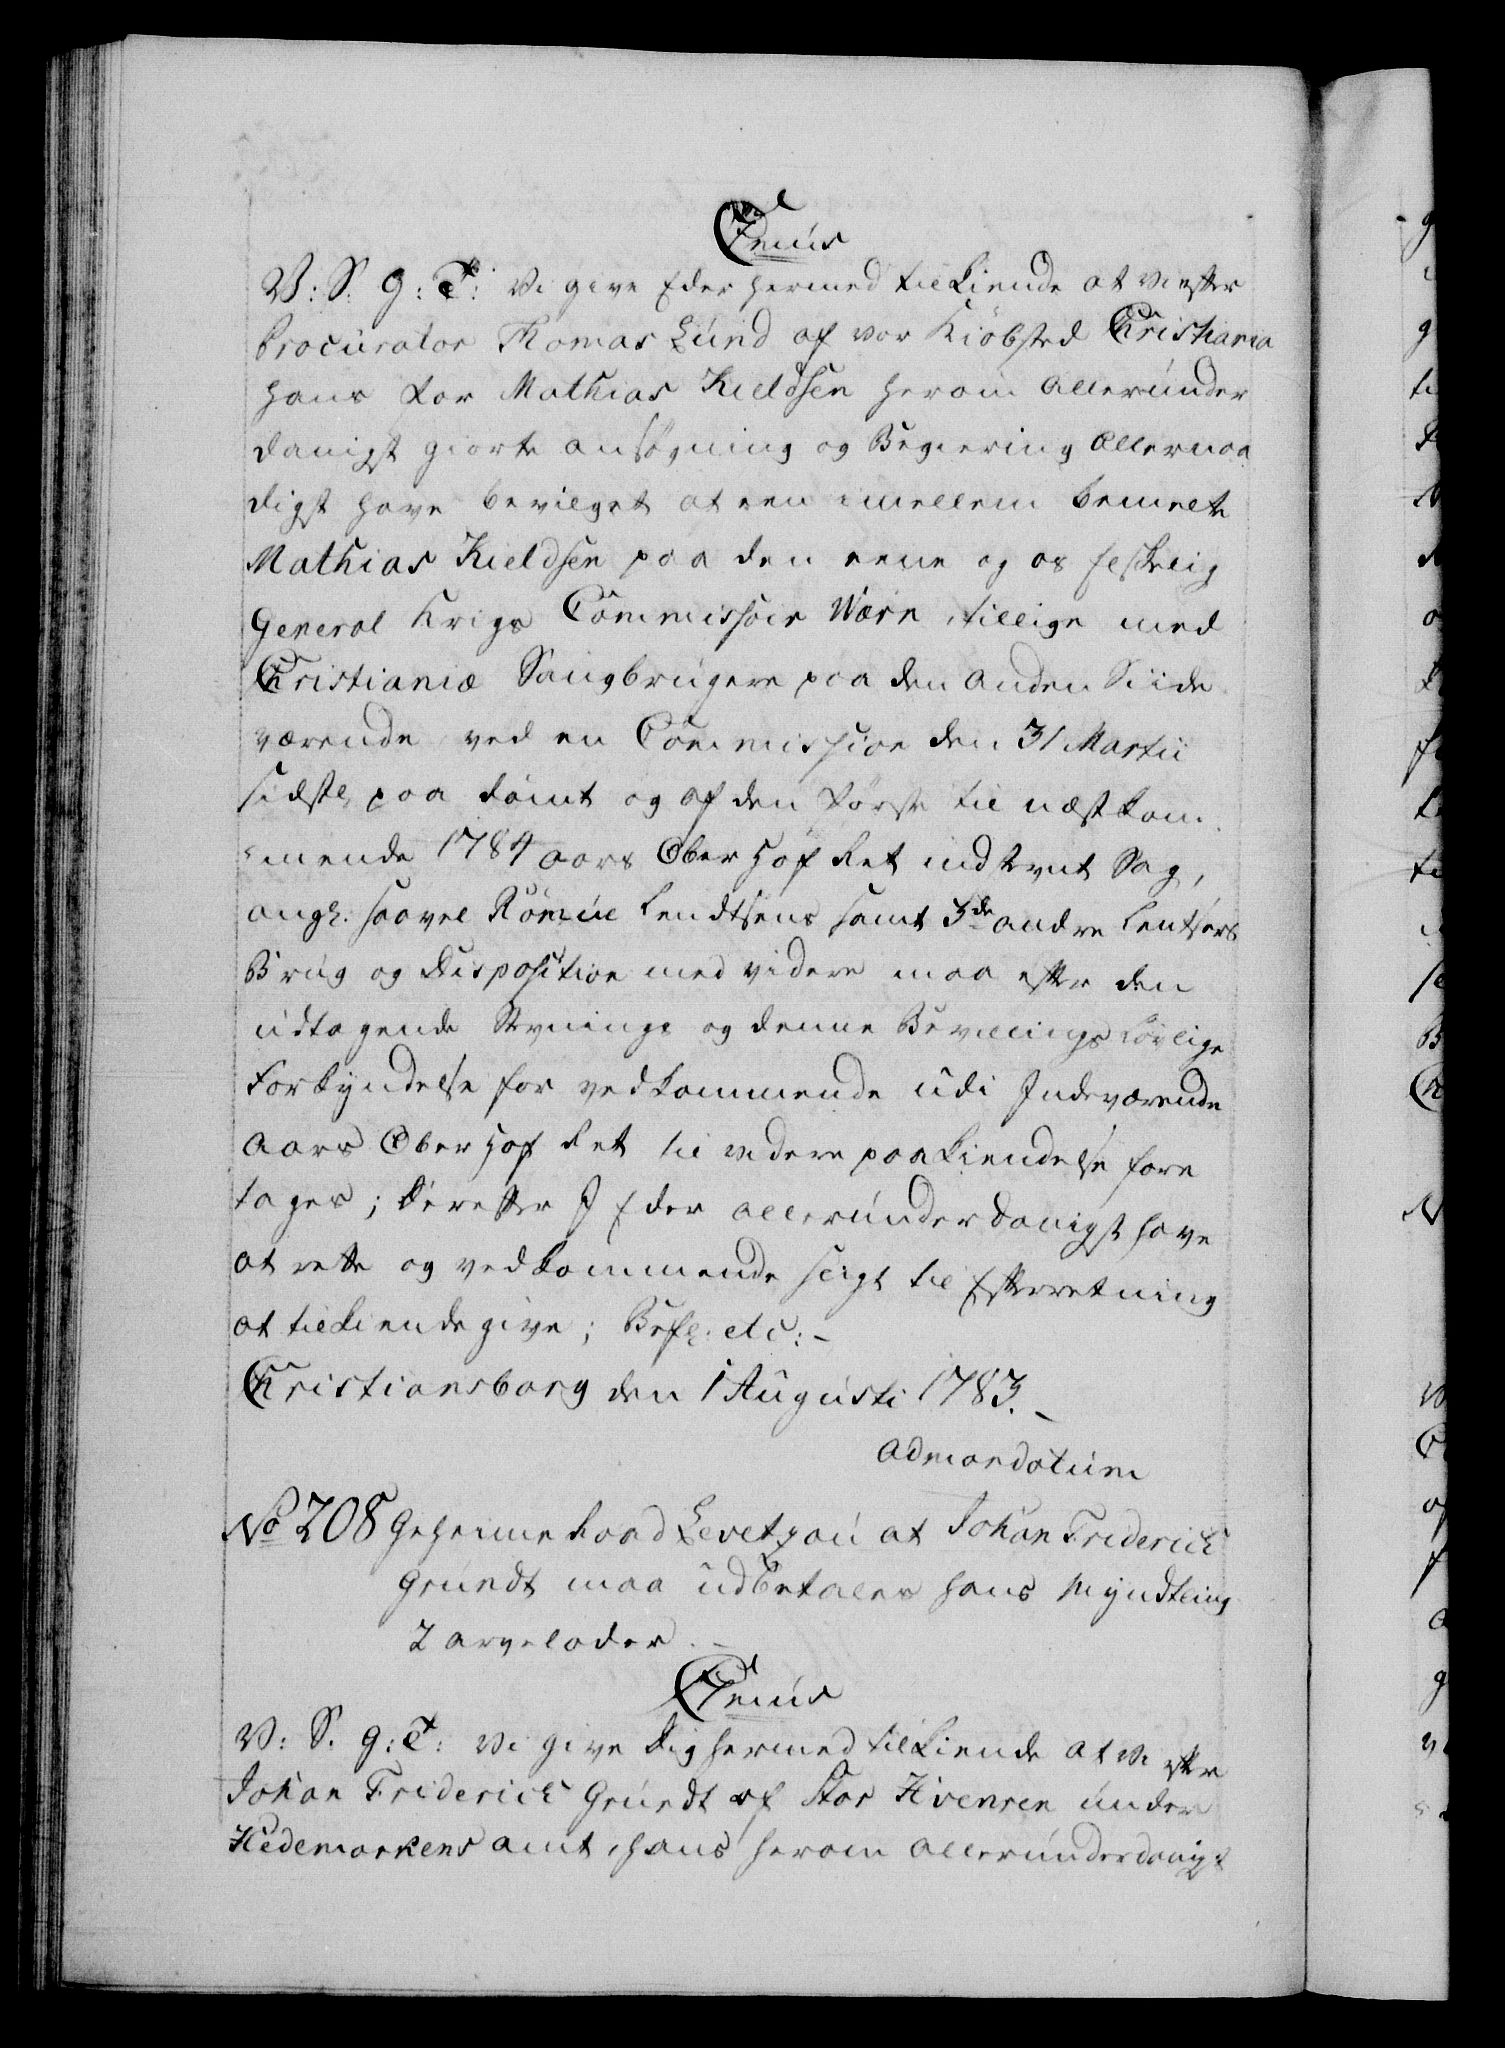 C7enus
V: S: g: T: Vi give Eder hermed tilkiende at Vi efter
Procurator Thomas Lund af vor Kiöbsted Christiania
hans for Mathias Kieldsen herom Allerunder
danigst giorte ansøgning og Begiering Allernaa
digst have bevilget at een imellem bemelte
Mathias Kieldsen paa den eene og os elskelig
General Krigs Commissair Wærn, tillige med
Christianiæ Saugbrugere paa den Anden Siide
værende ved en Commission den 31 Martii
sidstl. paa dömt og af den første til næstkom
mende 1784 aars OberHof Ret indstevnt Sag,
angl. saavel Lendtsens samt 3de andre Lentsers
Brug og Disposition med videre maa efter den
udtagende Stevnings og denne Bevillings Lovlige
Forkyndelse for vedkommende udi Indeværende
Aars OberHof Ret til videre paakiendelse fore
tages; Derefter I Eder allerunderdanigst have
at rette og vedkommende sligt til Efterretning
at tilkiendegive; Befl: etc:-
Christiansborg den 1 Augusti 1783.-
Admandatum
No 208 Geheime Raad Levetzau at Johan Friderich
Grundt maa udbetales hans Myndtling
2 arvelodder.-
C7enus
V: S. g: T: Vi give Dig hermed tilkiende at Vi efter
Johan Friderich Grundt af Stor Hvensen under
Hedemarkens amt, hans herom allerunderdanigst